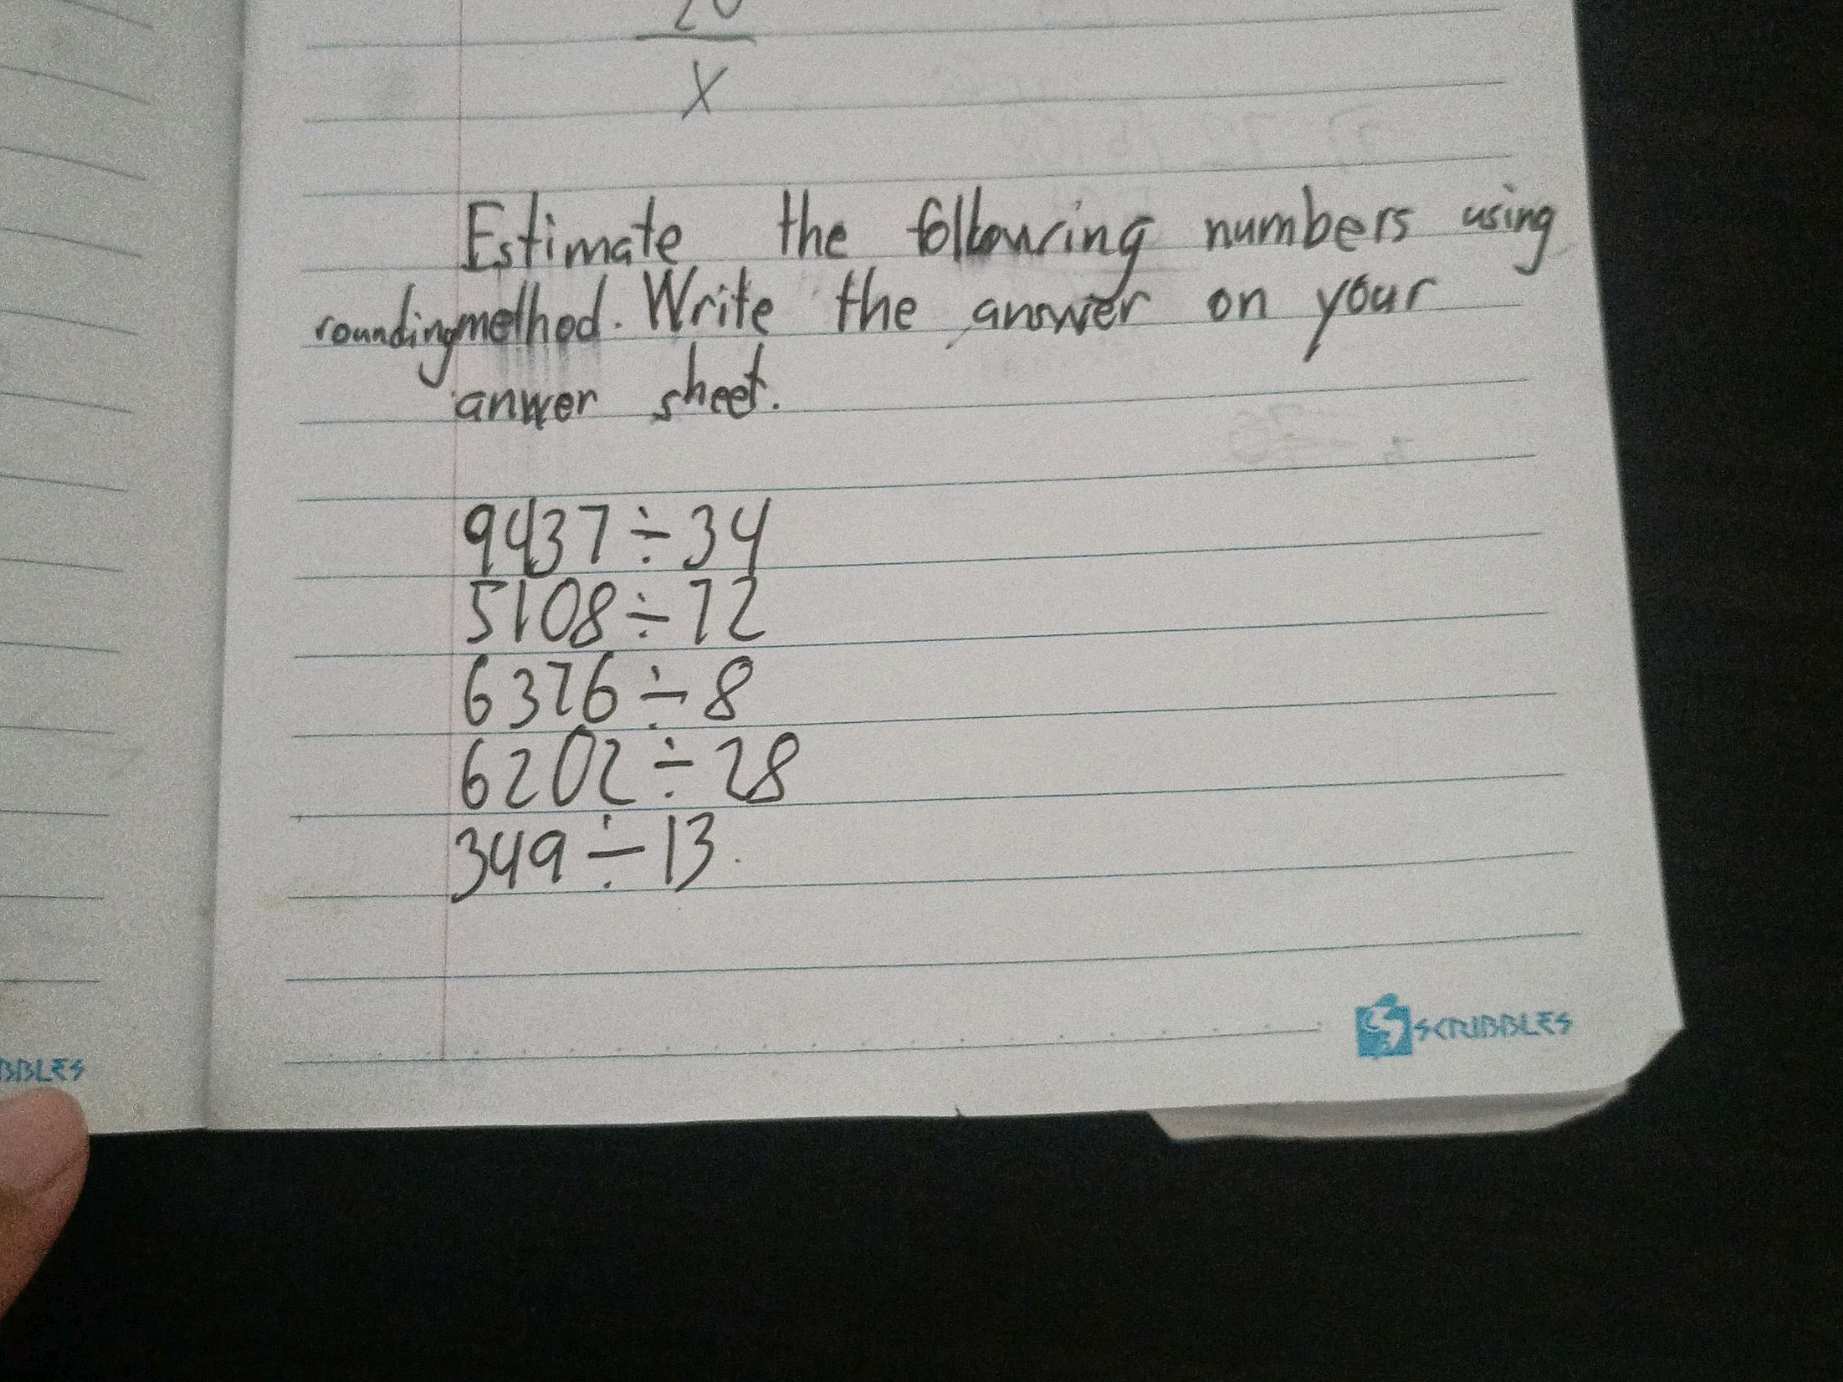 20
X
Estimate the following numbers using
rounding method. Write the answer on your
anwer sheet.
9437÷34
5108÷72
6376÷8
6202÷28
349÷13
SCRIBBLES
BBLES